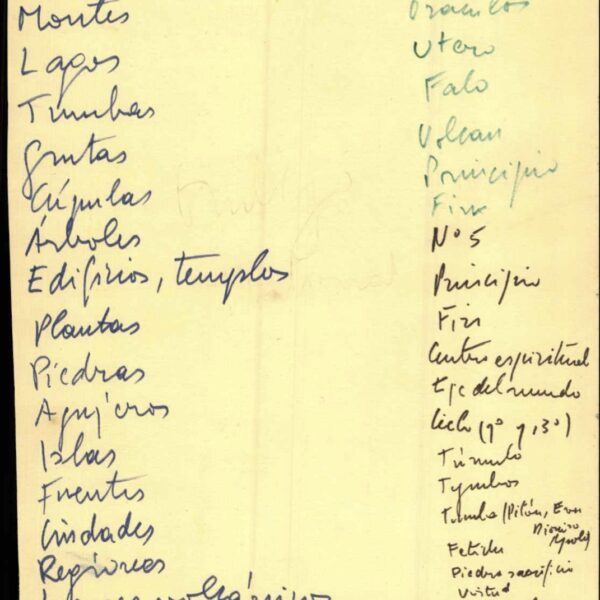 Montes
Lagos
Tumbas
Grutas
Cúpulas
Árboles
Edificios, templos
Plantas
Piedras
Agujeros
Islas
Fuentes
Ciudades
Regiones
Oraculos
Utero
Falo
Volcan
Principio
Fin
Nº 5
Principio
Fin
Centro espiritual
Eje del mundo
Cielo (9º y 13º)
Túmulo
Tymbos
Tumba (Pitón, Eva
Dioniso
Apolo)
Fetiche
Piedra sacrificio
Virtud